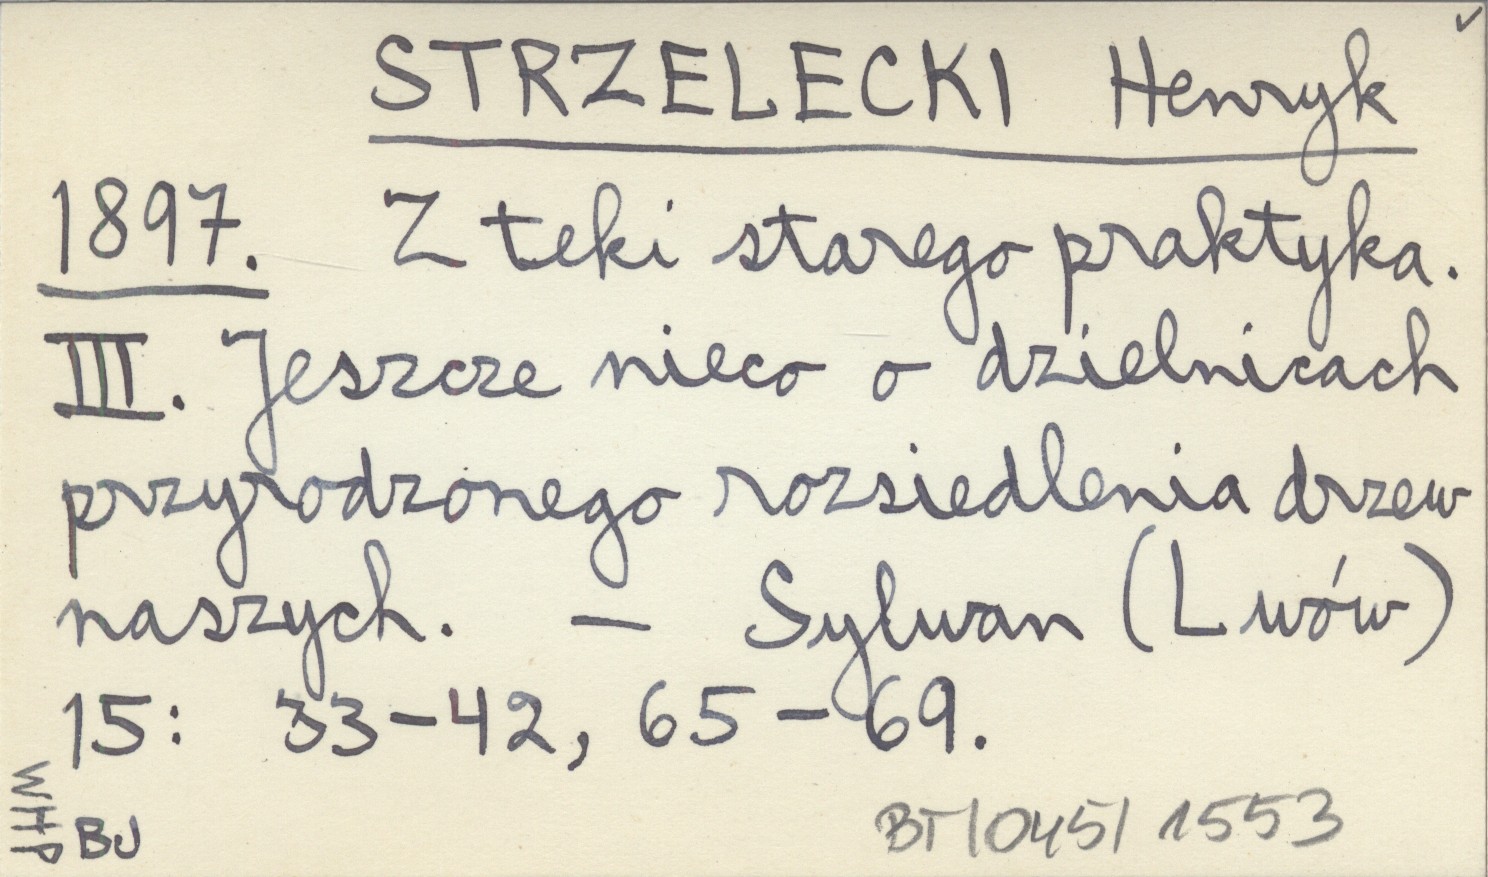 STRZELECKI Henryk
1897. Z teki starego praktyka.
III. Jeszcze nieco o dzielnicach
przyrodzonego rozsiedlenia drzew
naszych. — Sylwan (Lwów)
15: 33-42, 65-69.
WHP
BJ
BT/045/1553